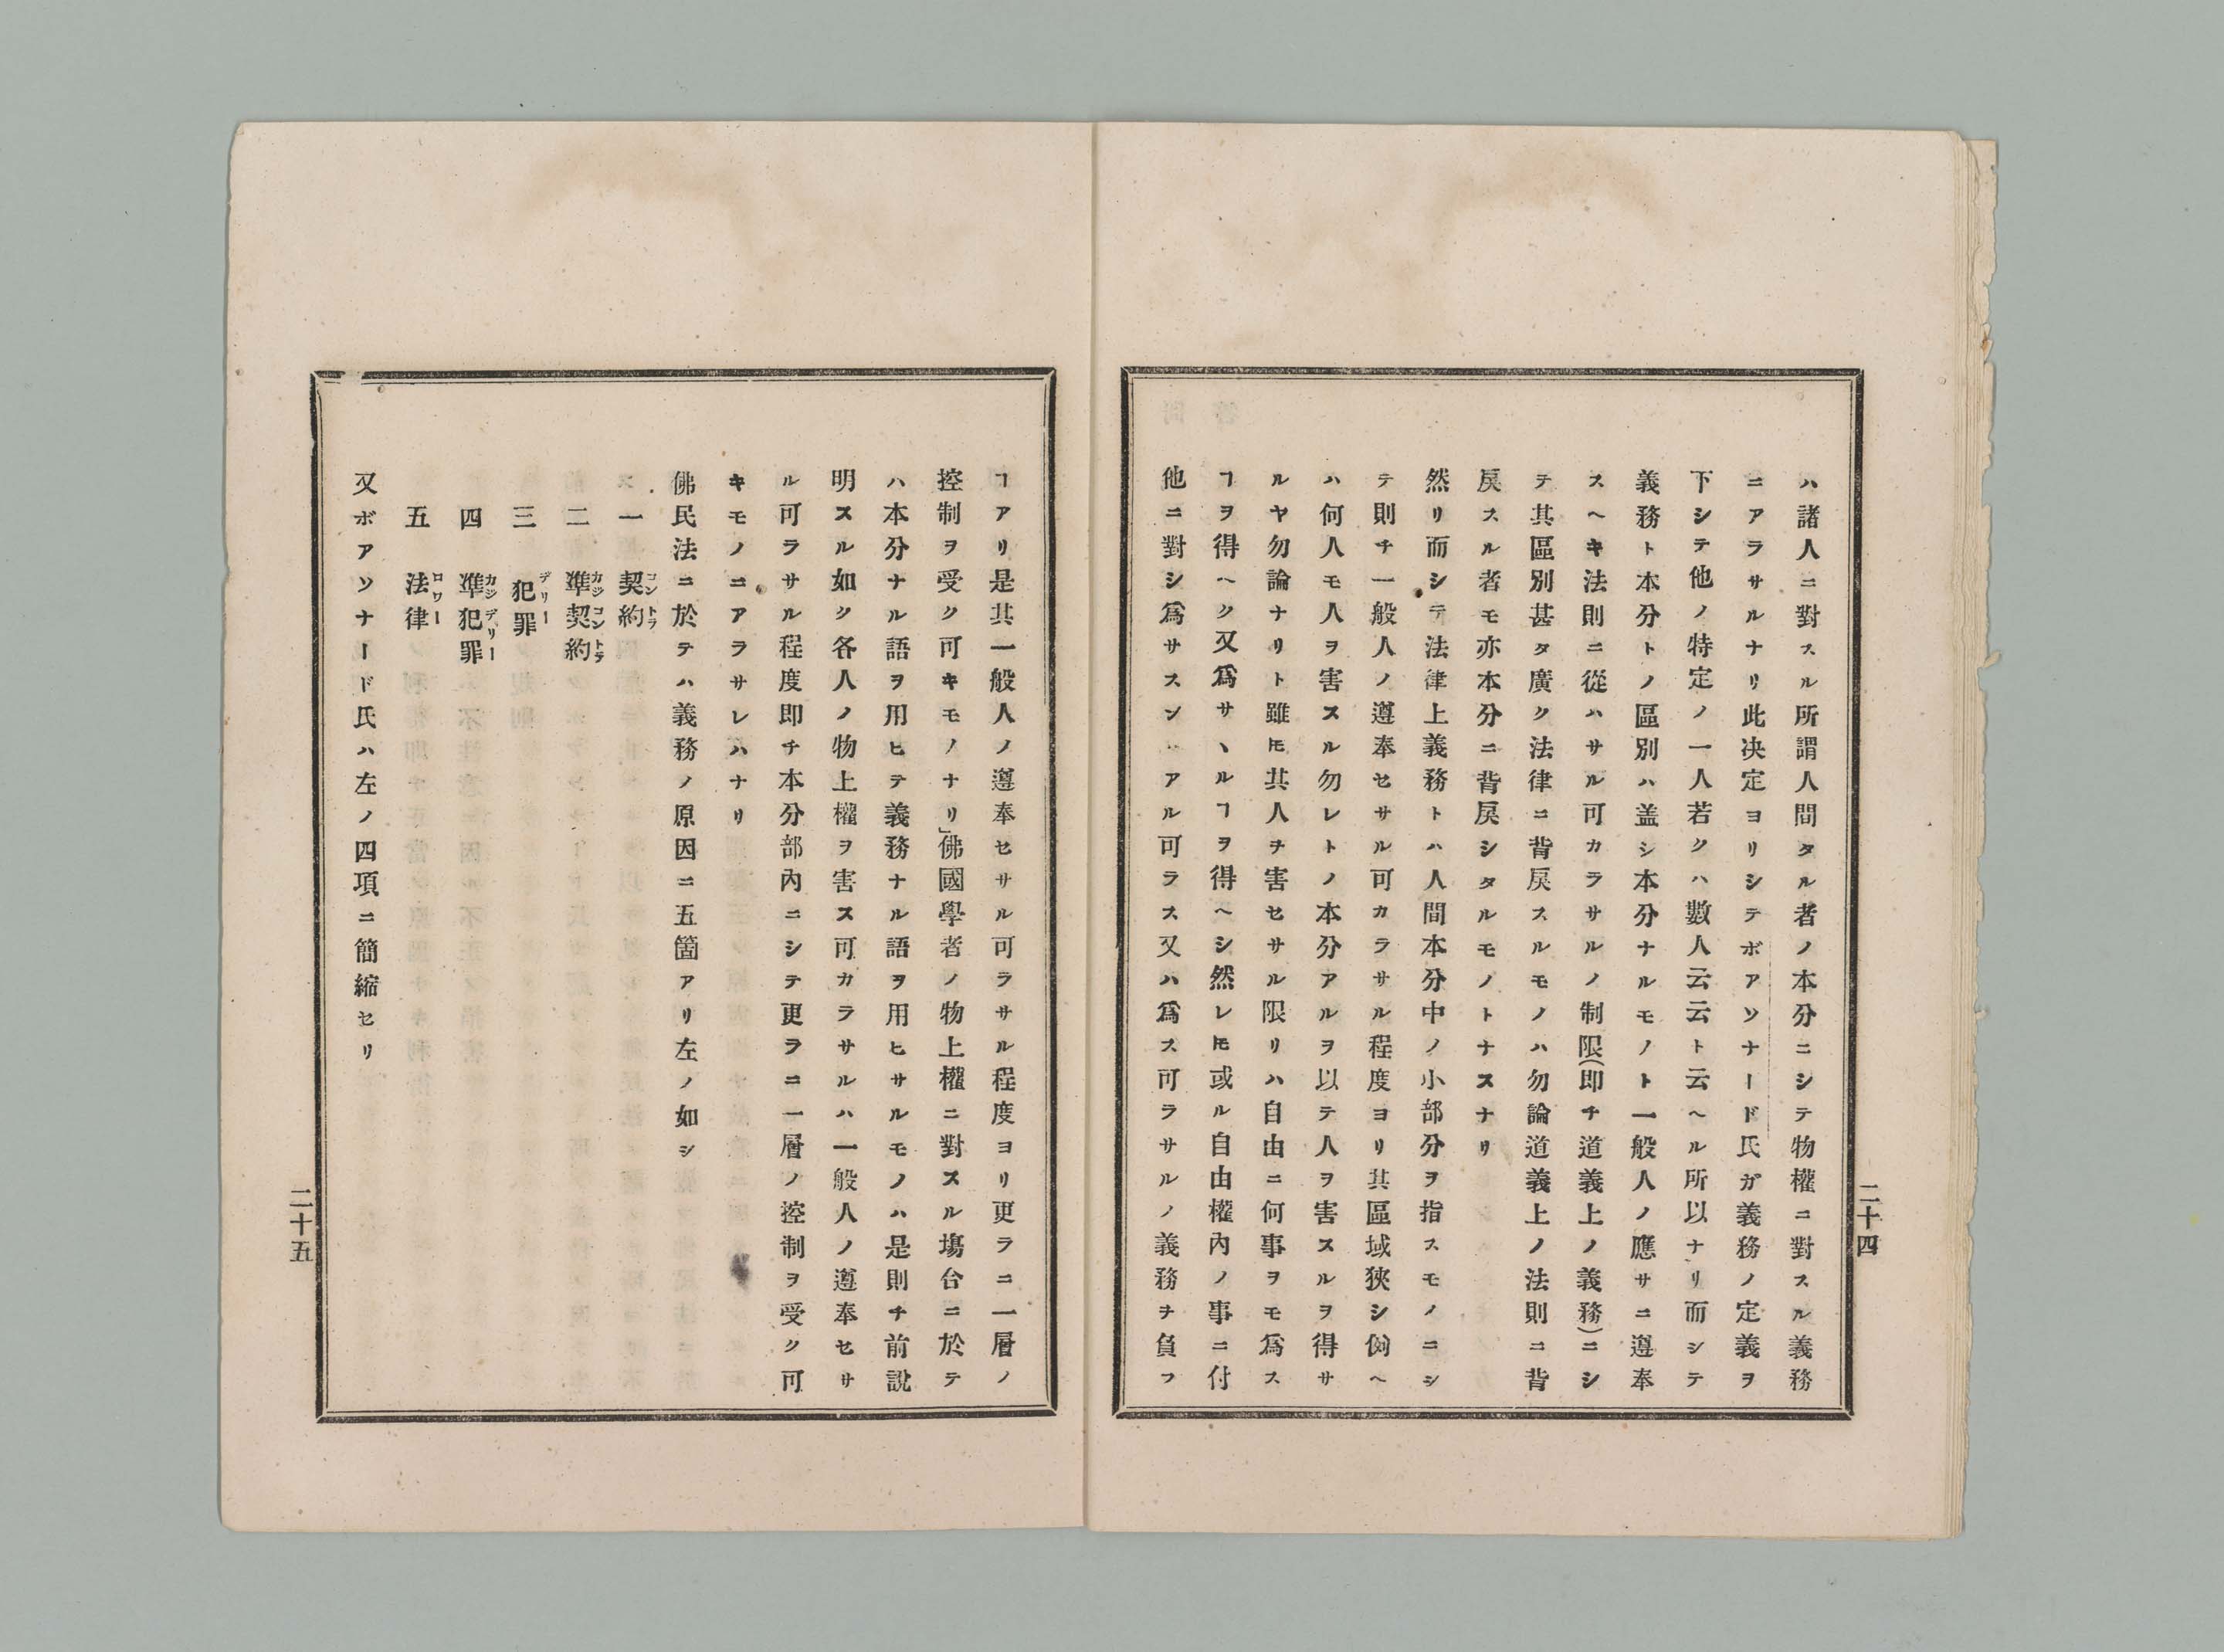 ハ諸人ニ對スル所謂人間タル者ノ本分ニシテ物權ニ對スル義務
ニアラサルナリ此决定ヨリシテボアソナード氏ガ義務ノ定義ヲ
下シテ他ノ特定ノ一人若クハ數人云云ト云ヘル所以ナリ而シテ
義務ト本分トノ區別ハ盖シ本分ナルモノト一般人ノ應サニ遵奉
スヘキ法則ニ從ハサル可カラサルノ制限(即チ道義上ノ義務)ニシ
テ其區別甚タ廣ク法律ニ背戻スルモノハ勿論道義上ノ法則ニ背
戻スル者モ亦本分ニ背戻シタルモノトナスナリ
然リ而シテ法律上義務トハ人間本分中ノ小部分ヲ指スモノニシ
テ則チ一般人ノ遵奉セサル可カラサル程度ヨリ其區域狹シ例ヘ
ハ何人モ人ヲ害スル勿レトノ本分アルヲ以テ人ヲ害スルヲ得サ
ルヤ勿論ナリト雖𪜈其人ヲ害セサル限リハ自由ニ何事ヲモ爲ス
ヿヲ得ヘク又爲サヽルヿヲ得ヘシ然レ𪜈或ル自由權內ノ事ニ付
他ニ對シ爲サスンハアル可ラス又ハ爲ス可ラサルノ義務チ負フ
二十四
ヿアリ是其一般人ノ遵奉セサル可ラサル程度ヨリ更ラニ一層ノ
控制ヲ受ク可キモノナリ」佛國學者ノ物上權ニ對スル塲合ニ於テ
ハ本分ナル語ヲ用ヒテ義務ナル語ヲ用ヒサルモノハ是則チ前說
明スル如ク各人ノ物上權ヲ害ス可カラサルハ一般人ノ遵奉セサ
ル可ラサル程度即チ本分部內ニシテ更ラニ一層ノ控制ヲ受ク可
キモノニアラサレハナリ
佛民法ニ於テハ義務ノ原因ニ五箇アリ左ノ如シ
一 契約 コントラ
二 準契約 カジコントラ
三 犯罪 デリー
四 準犯罪 カジデリー
五 法律 ロワー
又ボアソナード氏ハ左ノ四項ニ簡縮セリ
二十五